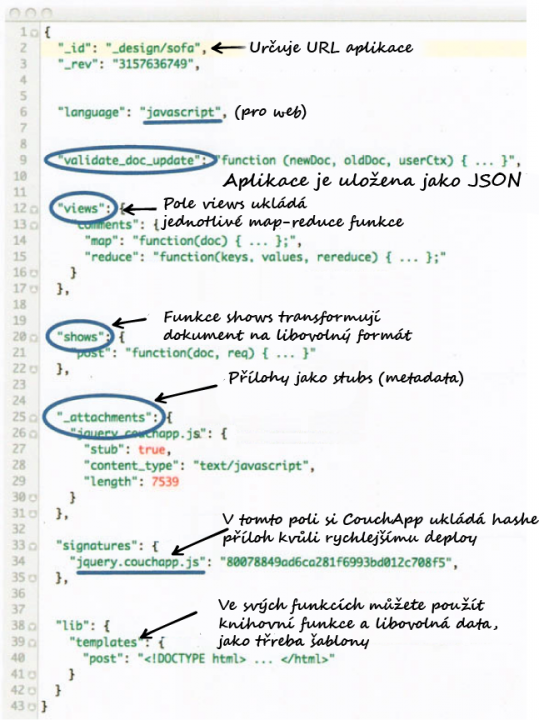 1 {
2 "_id": "_design/sofa", Určuje URL aplikace
3 "_rev": "3157636749",
4
5
6 "language": "javascript", (pro web)
7
8
9 "validate_doc_update": "function (newDoc, oldDoc, userCtx) { ... }",
10
Aplikace je uložena jako JSON
11
12 "views": { Pole views ukládá
13 "comments": { jednotlivé map-reduce funkce
14 "map": "function(doc) { ... };",
15 "reduce": "function(keys, values, rereduce) { ... };"
16 }
17 },
18
19 Funkce shows transformují
20 "shows": { dokument na libovolný formát
21 "post": "function(doc, req) { ... }"
22 },
23 Přílohy jako stubs (metadata)
24
25 "_attachments": {
26 "jquery.couchapp.js": {
27 "stub": true,
28 "content_type": "text/javascript",
29 "length": 7539
30 }
31 }, V tomto poli si CouchApp ukládá hashe
32 příloh kvůli rychlejšímu deploy
33 "signatures": {
34 "jquery.couchapp.js": "80078849ad6ca281f6993bd012c708f5",
35 },
36
37 Ve svých funkcích můžete použít
38 "lib": { knihovní funkce a libovolná data,
39 "templates": { jako třeba šablony
40 "post": "<!DOCTYPE html> ... </html>"
41 }
42 }
43 }